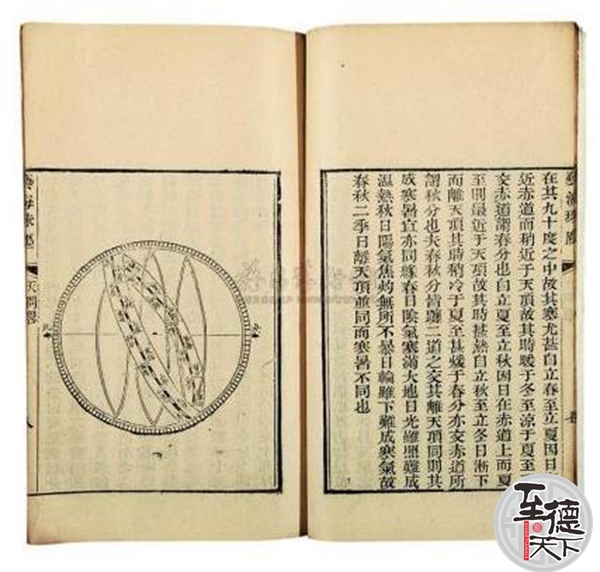 在其九十度之中故其寒尤甚自立春至立夏因日
近赤道而稍近于天頂故其時暖于冬至涼于夏至
交赤道謂春分也自立夏至立秋因日在赤道上而夏
至則最近于天頂故其時甚熱自立秋至立冬日漸下
而離天頂其時稍冷于夏至甚煖于春分亦交赤道所
謂秋分也夫春秋分皆躔二道之交其離天頂同則其
成寒暑宜亦同緣春日陰氣塞滿大地日光雖照難成
溫熱秋日陽氣焦灼無所不暴日輪雖下難成寒氣故
春秋二季日離天頂並同而寒暑不同也
藝海珠塵
天問畧
八
至德天下